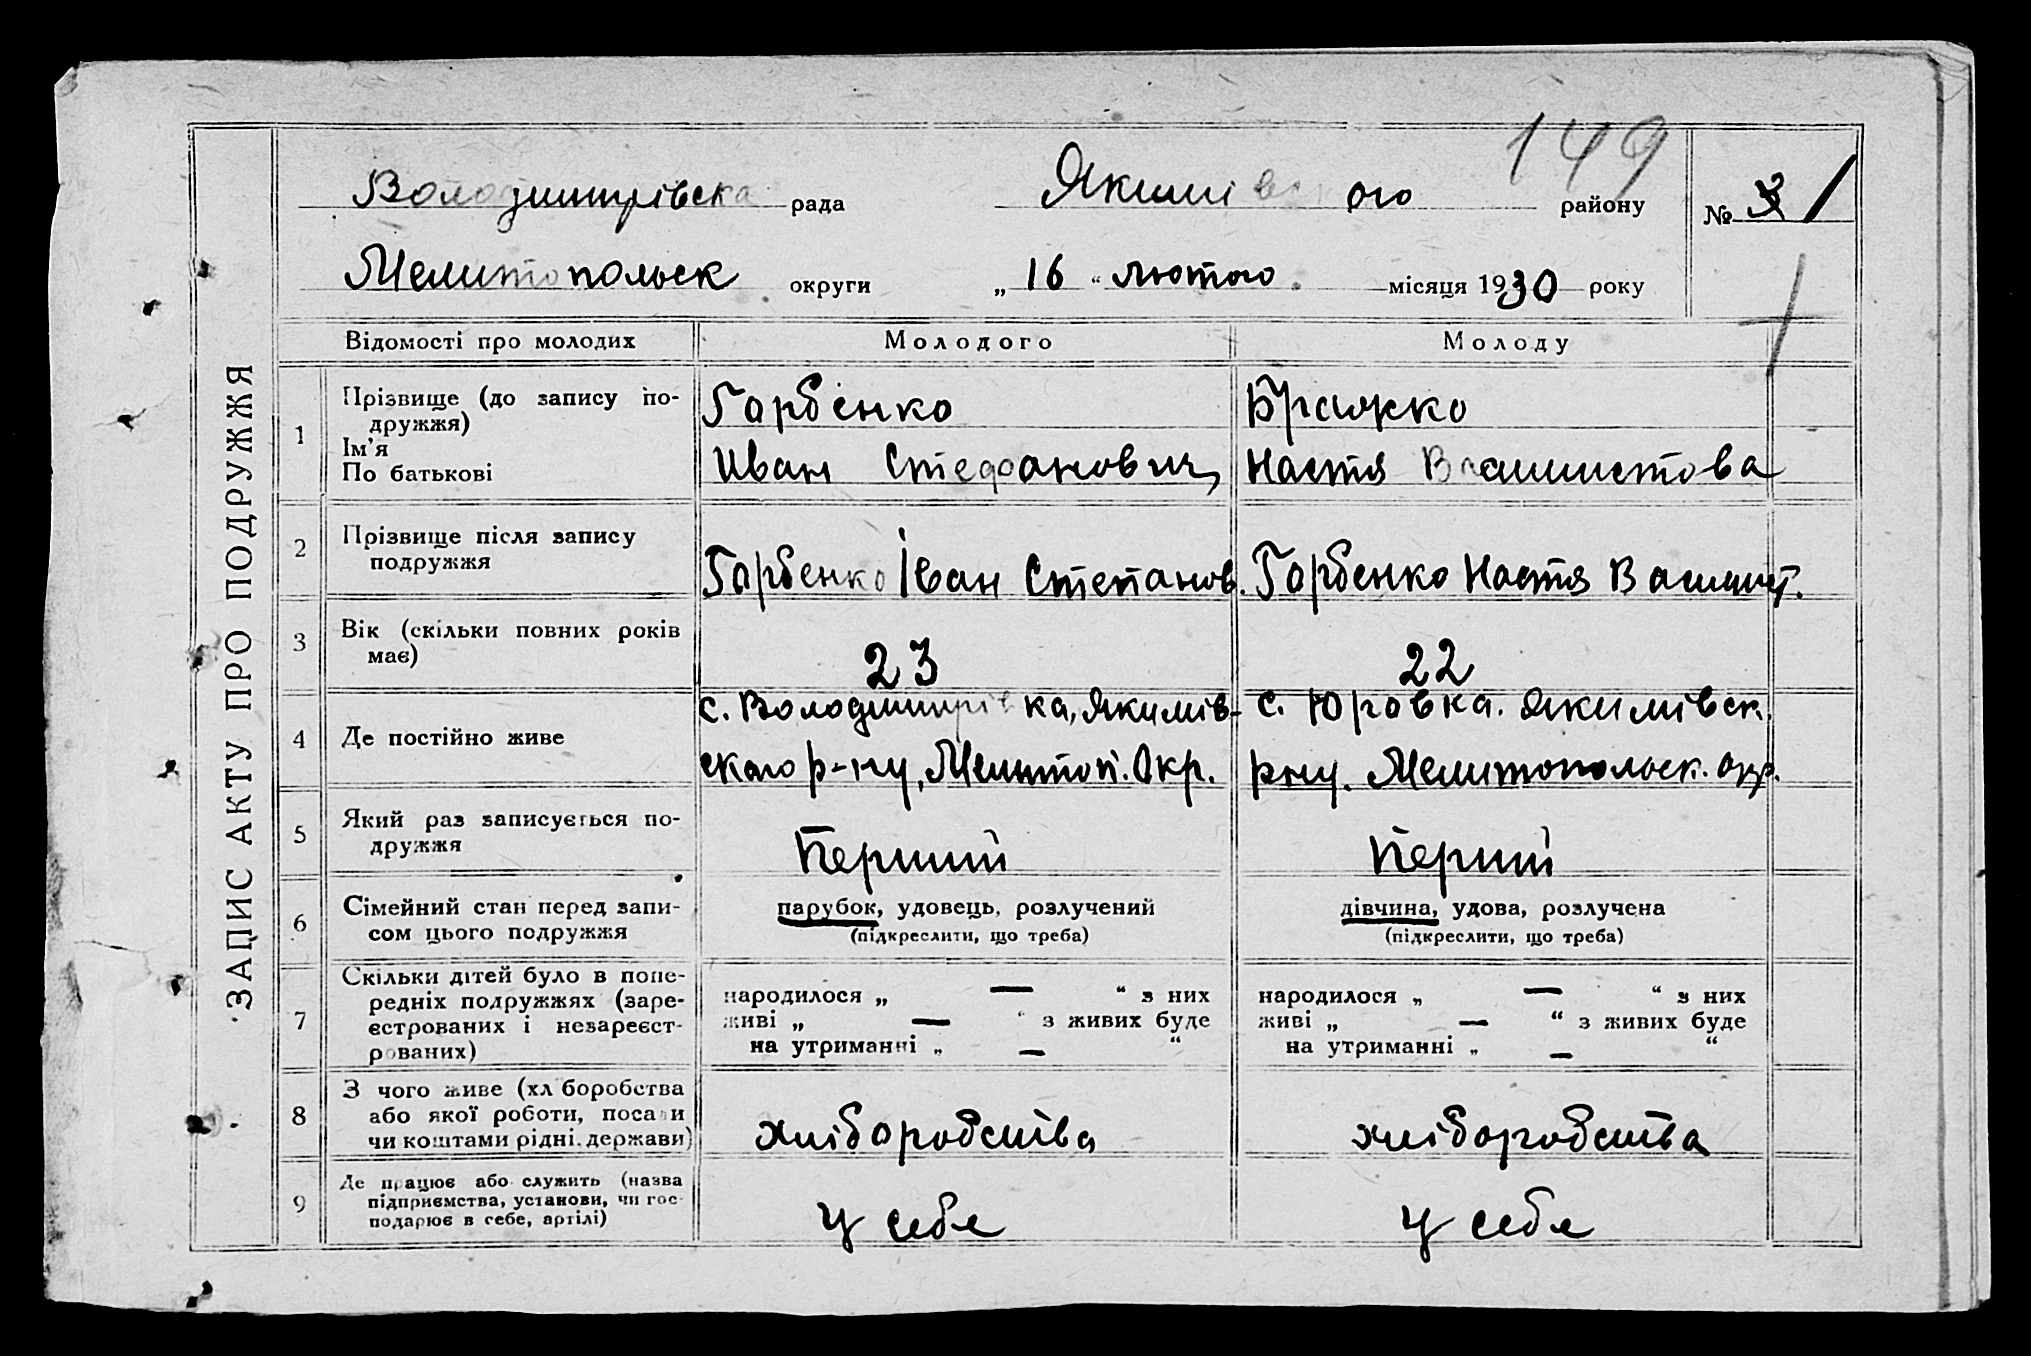 149
Володимирівска рада Якимівского району № 3 1
Мелитопольск округи „ 16 “ лютого місяця 1930 року
ЗАПИС АКТУ ПРО ПОДРУЖЖЯ
Відомості про молодих Молодого Молоду
1 Прізвище (до запису по-
дружжя)
Ім'я
По батькові
Горбенко
Иван Стефанович
Бражко
Настя
2 Прізвище після запису
подружжя
Горбенко Іван Степанов.
Горбенко Настя
3 Вік (скільки повних років
має)
23
22
4 Де постійно живе
с. Володимирівка, Якимів-
ского р-ну, Мелитоп. Окр.
с. Юровка. Якимівск.
рну. Мелитопольск. окр.
5 Який раз записується по-
дружжя
Перший
Перший
6 Сімейний стан перед запи-
сом цього подружжя
парубок, удовець, розлучений
(підкреслити, що треба)
дівчина, удова, розлучена
(підкреслити, що треба)
7 Скільки дітей було в попе-
редніх подружжях (заре-
єстрованих і незареєст-
рованих)
народилося „ — “ з них
живі „ — “ з живих буде
на утриманні „ — “
народилося „ — “ з них
живі „ — “ з живих буде
на утриманні „ — “
8 З чого живе (хліборобства
або якої роботи, посади
чи коштами рідні, держави)
хліборобства
хліборобства
9 Де працює або служить (назва
підприємства, установи, чи гос-
подарює в себе, артілі)
у себе
у себе